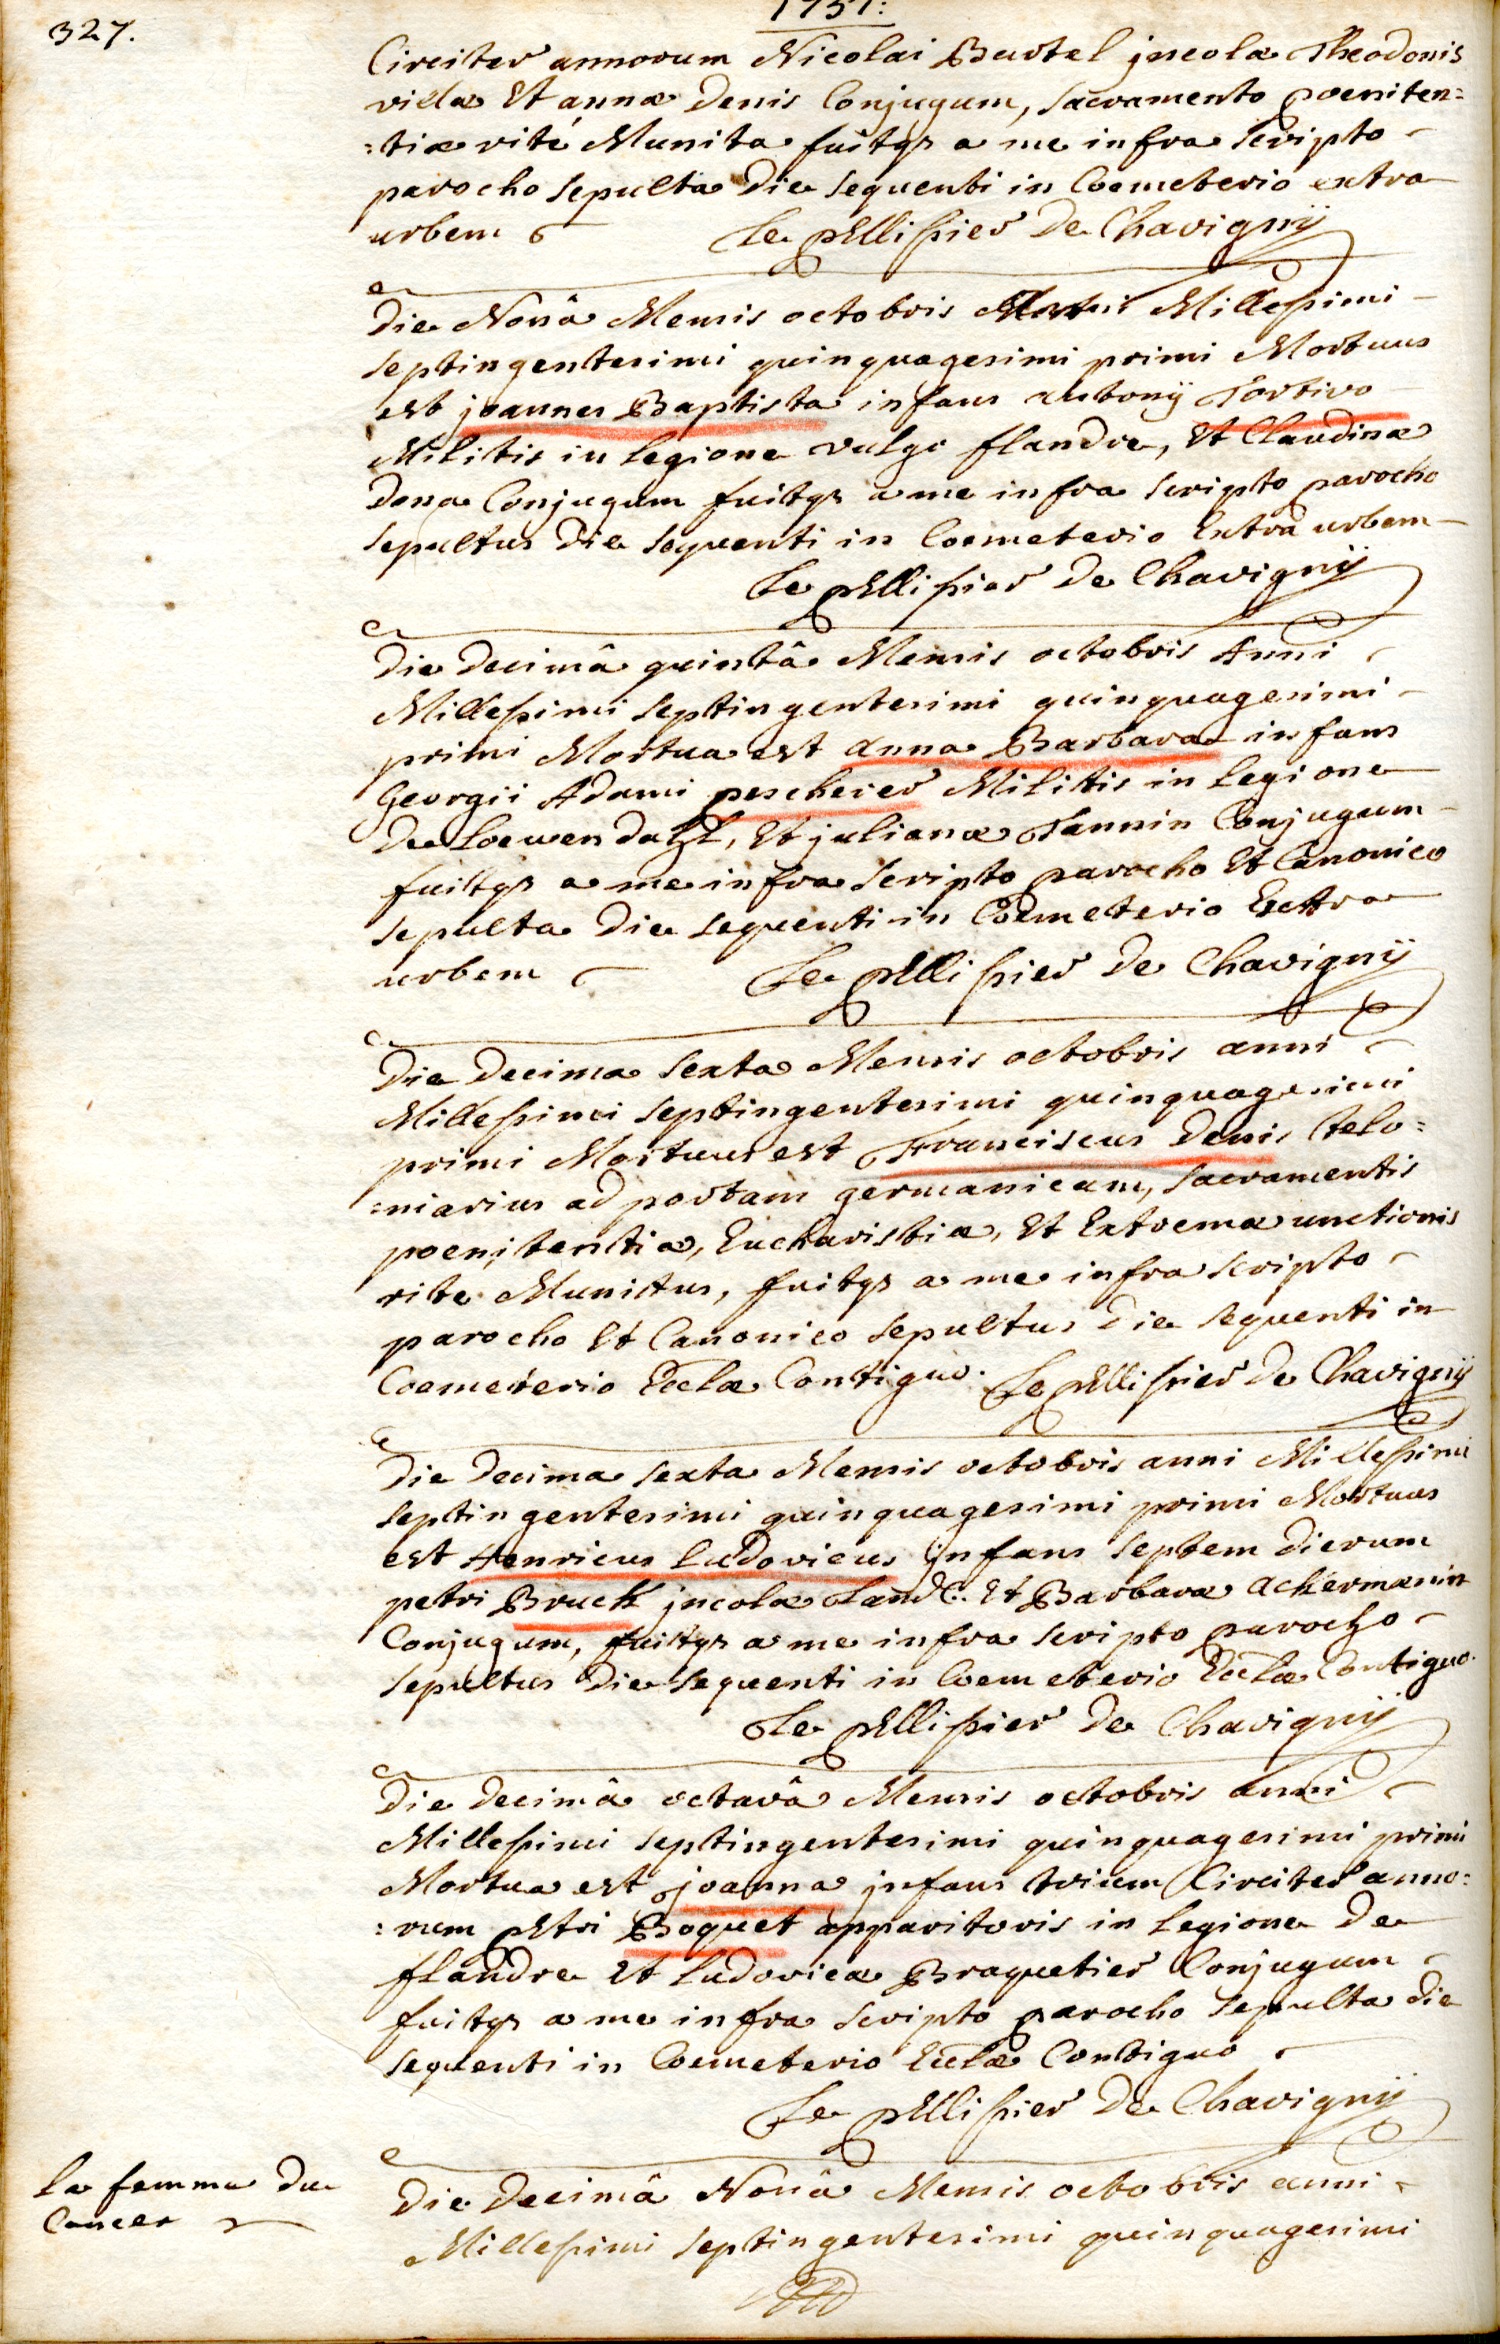 327.
1751:
Circiter annorum Nicolai Bartel jncolæ Theodonis
villæ Et annæ Denis Conjugum, sacramento poeniten=
=tiæ rité Munita fuitqz a me infra scripto
parocho sepulta Die sequenti in Coemeterio extra
urbem Le pEllissier De Chavignÿ
Die Nonâ Mensis octobris Millessimi
septingentesimi quinquagesimi primi Mortuus
est joannes Baptista infans antonÿ Tortivo
Militis in legione vulgo flandre, Et Claudinæ
Dona Conjugum fuitqz a me infra scripto parocho
sepultus Die sequenti in Coemeterio Extrà urbem
Le pEllissier De Chavignÿ
Die Decimâ quintâ Mensis octobris Anni
Millessimi septingentesimi quinquagesimi
primi Mortua est anna Barbara infans
Georgii Adami pescheier Militis in legione
De Loewendahl, Et julianæ Tannin Conjugum
fuitqz a me infra scripto parocho Et Canonico
sepulta Die sequenti in Coemeterio Extra
urbem Le pEllissier De Chavignÿ
Die Decima sexta Mensis octobris anni
Millessimi septingentesimi quinquagesimi
primi Mortuus est Franciscus Denis telo=
=niarius ad portam germanicam, sacramentis
poenitentiæ, Eucharistiæ, Et Extremæ unctionis
rite Munitus, fuitqz a me infra scripto
parocho Et Canonico sepultus Die sequenti in
Coemeterio Ecclæ Contiguo. Le pEllissier De Chavignÿ
Die Decima sexta Mensis octobris anni Millessimi
septingentesimi quinquagesimi primi Mortuus
est Henricus Ludovicus jnfans septem Dierum
petri Bruck jncolæ Et Barbaræ Ackermanin
Conjugum, fuitqz a me infra scripto parocho
sepultus Die sequenti in Coemeterio Ecclæ Contiguo.
Le pEllissier De Chavignÿ
Die Decimâ octavâ Mensis octobris anni
Millessimi septingentesimi quinquagesimi primi
Mortua est joanna jnfans trium Circiter anno=
=rum pEtri Boquet apparitoris in legione De
flandre Et Ludovicæ Braquetier Conjugum
fuitqz a me infra scripto parocho sepulta die
sequenti in Coemeterio Ecclæ Contiguo
Le pEllissier De Chavignÿ
La femme Du
Cancer
Die Decimâ Nonâ Mensis octobris anni
Millessimi septingentesimi quinquagesimi